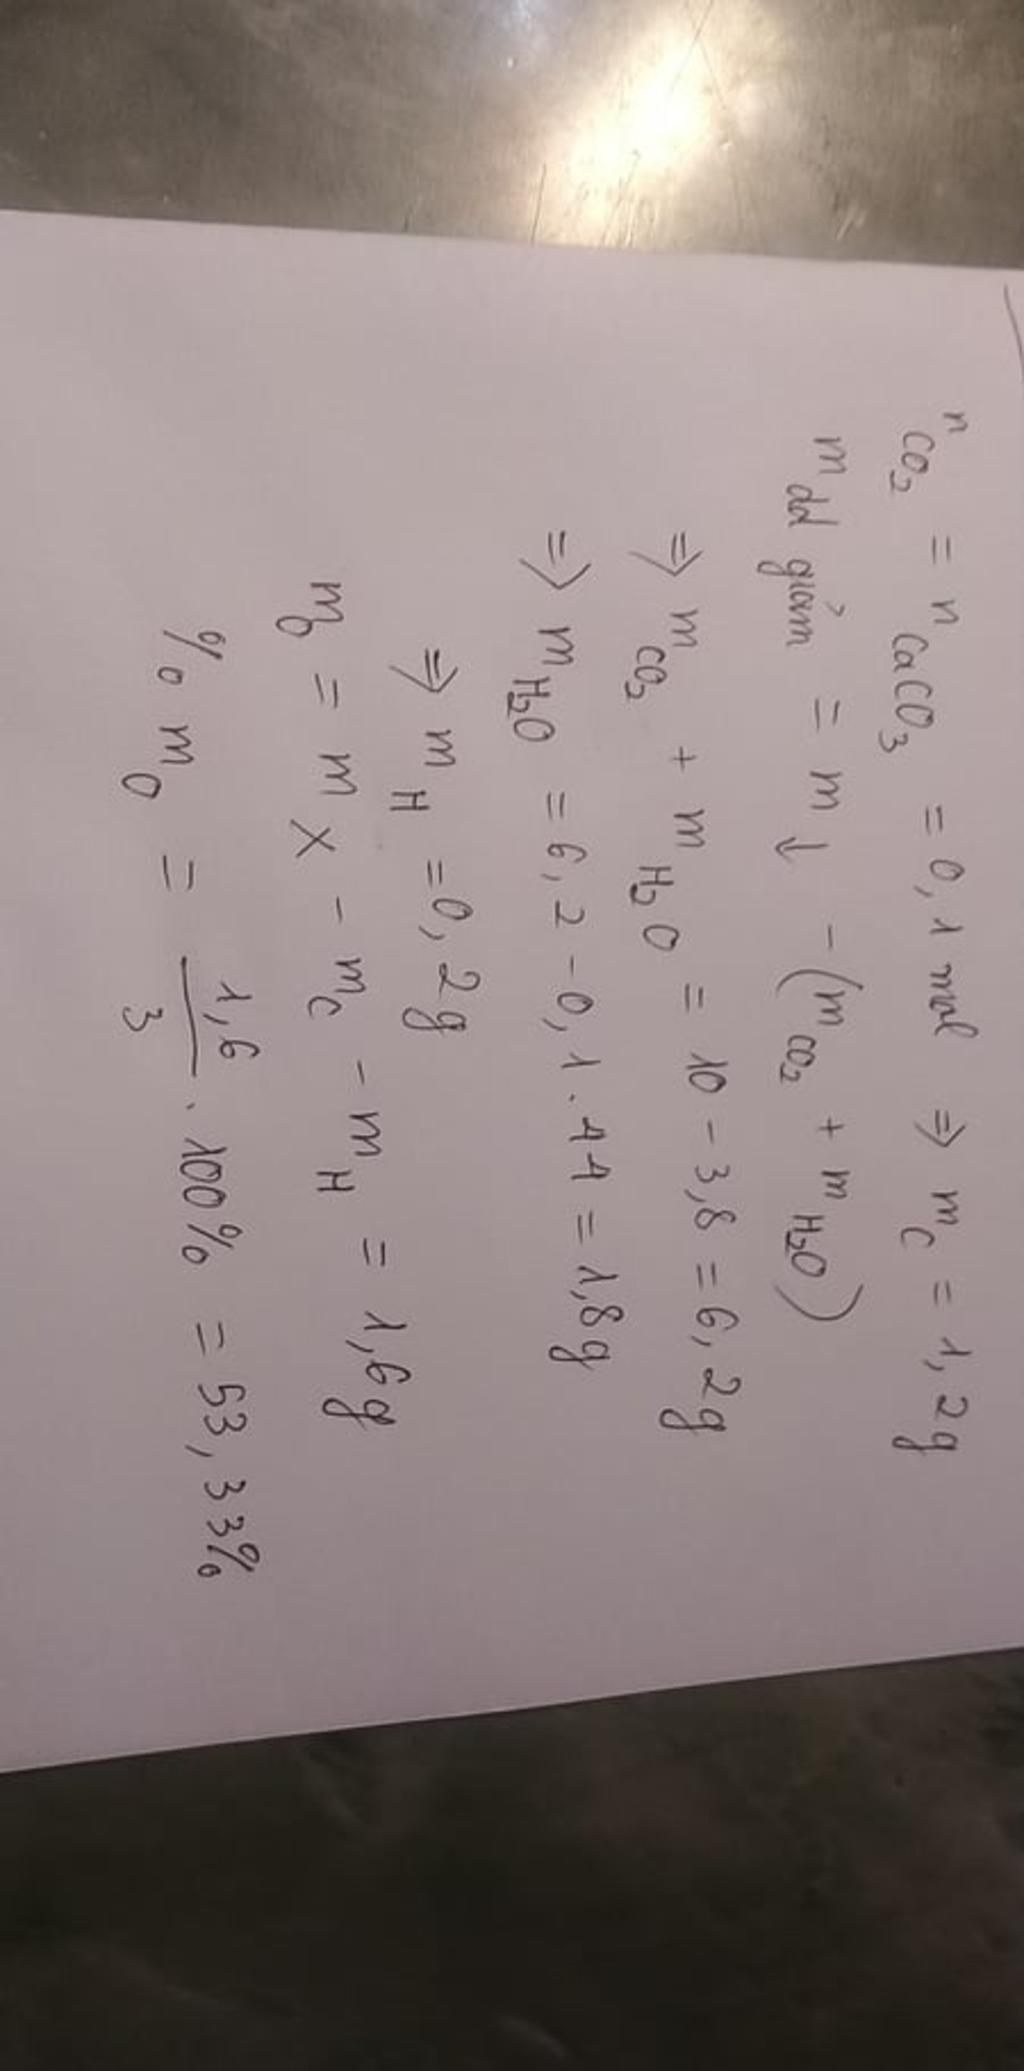 n CO2 = n CaCO3 = 0,1 mol => mC = 1,2g
m dd giảm = m↓ - (mCO2 + mH2O)
=> mCO2 + mH2O = 10 - 3,8 = 6,2g
=> mH2O = 6,2 - 0,1 . 44 = 1,8g
=> mH = 0,2g
mO = mX - mC - mH = 1,6g
% mO = 1,6/3 . 100% = 53,33%